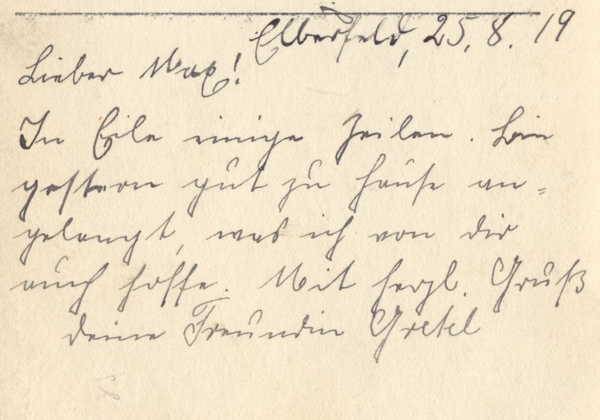 Elberfeld, 25. 8. 19
Lieber Max!
In Eile einige Zeilen. Bin
gestern gut zu Hause an=
gelangt, was ich von dir
auch hoffe. Mit herzl. Gruß
deine Freundin Gretel